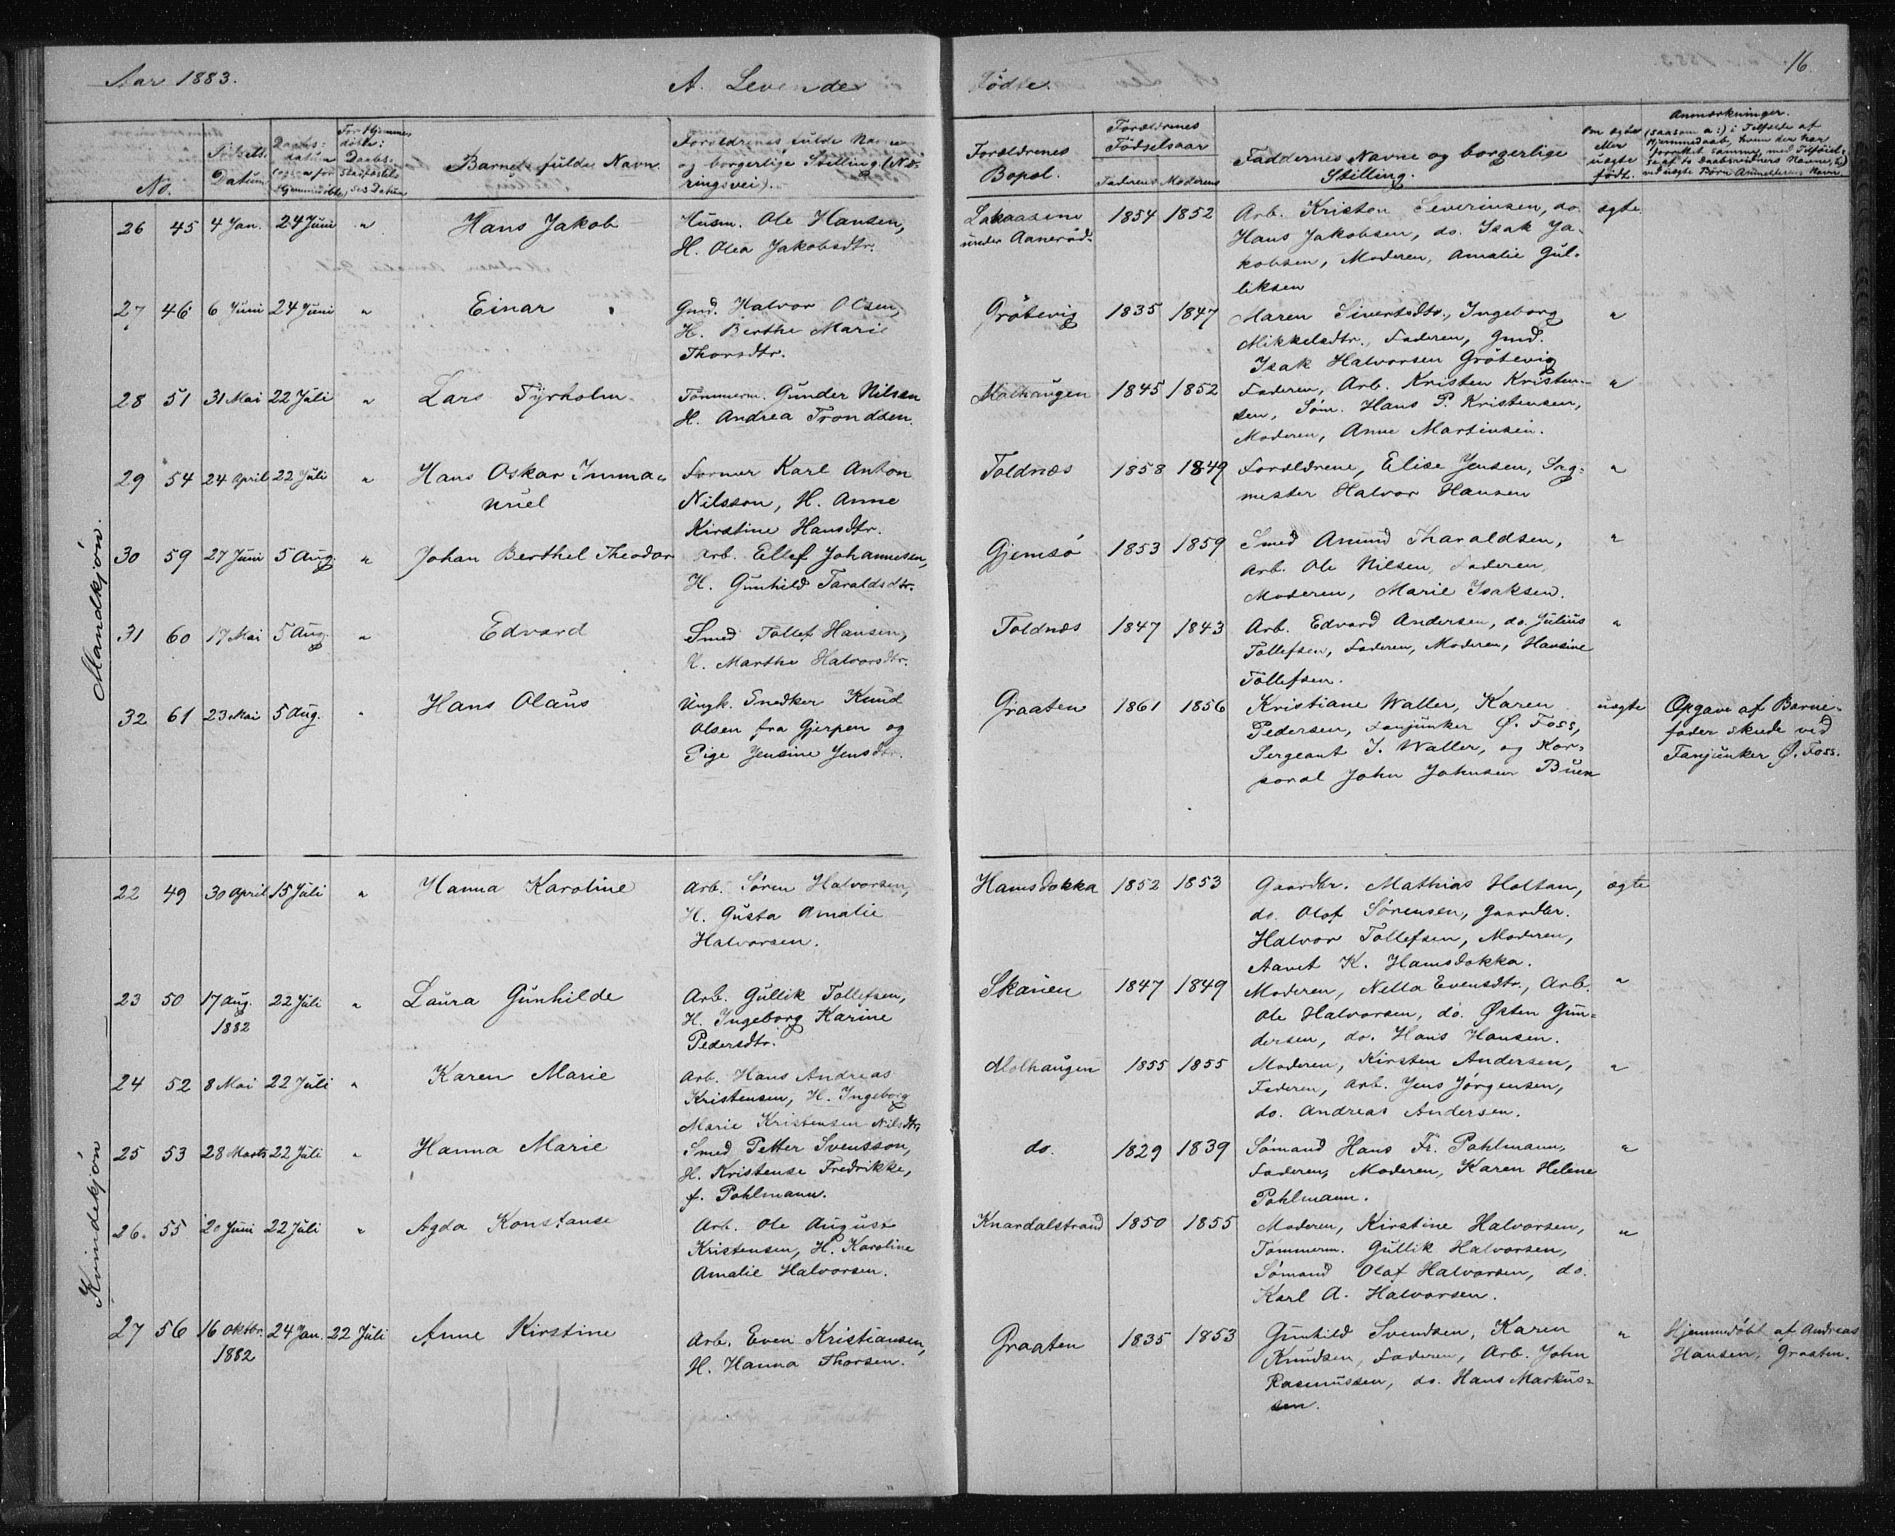 Aar 1883. A. Levende Fødte. 16.
No. Fødsels-Datum Barnets fulde Navn. Forældrenes fulde Navne og borgerlige Stilling (Næringsvei). Forældrenes Bopæl. Forældrenes Fødselsaar Faderens Moderens Faddernes Navne og borgerlige Stilling. Om ægte eller uægte født. Anmærkninger.
Mandkjøn.
26 45 4 Jan. 24 Juni " Hans Jakob Husm. Ole Hansen, Lakaasene 1854 1852 Arb. Kristen Severinsen, do. ægte
H. Olea Jakobsdtr. under Aanerød. Hans Jakobsen, do. Isak Ja-
kobsen, Moderen, Amalie Gul-
liksen
27 46 6 Juni 24 Juni " Einar Gmd. Halvor Olsen, Grøtevig 1835 1847 Maren Sivertsdtr., Ingeborg "
H. Berthe Marie Mikkelsdtr., Faderen, Gmd.
Thorsdtr. Isak Halvorsen Grøtevig
28 51 31 Mai 22 Juli " Lars Tyrholm Tømmerm. Gunder Nilsen Molhaugen 1845 1852 Faderen, Arb. Kristen Kristen- "
H. Andrea Trondsen. sen, Søm. Hans P. Kristensen,
Moderen, Anne Martinsen.
29 54 24 April 22 Juli " Hans Oskar Imma- Former Karl Anton Toldnæs 1858 1849 Forældrene, Elise Jensen, Sag- "
nuel Nilsson, H. Anne mester Halvor Hansen
Kirstine Hansdtr.
30 59 27 Juni 5 Aug. " Johan Berthel Theodor Arb. Ellef Johannesen, Gjemsø 1853 1859 Smed Amund Tharaldsen, "
H. Gunhild Taraldsdtr. Arb. Ole Nilsen, Faderen,
Moderen, Marie Isaksen.
31 60 17 Mai 5 Aug. " Edvard Smed Tollef Hansen, Toldnæs 1847 1843 Arb. Edvard Andersen, do. Julius "
H. Marthe Halvorsdtr. Tollefsen, Faderen, Moderen, Hansine
Tollefsen.
32 61 23 Mai 5 Aug. " Hans Olaus Ungk. Snedker Knud Graaten 1861 1856 Kristiane Waller, Karen uægte Opgave af Barne-
Olsen fra Gjerpen og Pedersen, Fanjunker Ø. Foss, fader skede ved
Pige Jensine Jensdtr. Sergeant J. Waller, og Kor- Fanjunker Ø. Foss.
poral John Johnsen Buen
Kvindekjøn
22 49 30 April 15 Juli " Hanna Karoline Arb. Søren Halvorsen, Hamsdokka 1852 1853 Gaardbr. Mathias Holtan, ægte
H. Gusta Amalie do. Olof Sørensen, Gaardbr.
Halvorsen. Halvor Tollefsen, Moderen,
Aavet K. Hamsdokka.
23 50 17 Aug. 22 Juli " Laura Gunhilde Arb. Gullik Tollefsen, Skanien 1847 1849 Moderen, Nella Evensdtr., Arb. "
1882 H. Ingeborg Karine Ole Halvorsen, do. Østen Gun-
Pedersdtr. dersen, do. Hans Hansen.
24 52 8 Mai 22 Juli " Karen Marie Arb. Hans Andreas Molhaugen 1855 1855 Moderen, Kirsten Andersen, "
Kristensen, H. Ingeborg Faderen, Arb. Jens Jørgensen,
Marie Kristensen Nilsdtr. do. Andreas Andersen.
25 53 28 Marts 22 Juli " Hanna Marie Smed Petter Svensson, do. 1829 1839 Sømand Hans Fr. Pohlmann, "
H. Kristense Fredrikke, Faderen, Moderen, Karen Helene
f. Pohlmann. Pohlmann.
26. 55 20 Juni 22 Juli " Agda Konstanse Arb. Ole August Knardalstrand 1850 1855 Moderen, Kirstine Halvorsen, "
Kristensen, H. Karoline Tømmerm. Gullik Halvorsen,
Amalie Halvorsen. Sømand Olaf Halvorsen, do.
Karl A. Halvorsen.
27 56 16 Oktbr. 24 Jan. 22 Juli Anne Kirstine Arb. Even Kristiansen, Graaten 1835 1853 Gunhild Svendsen, Karen " Hjemmedøbt af Andreas
1882 H. Hanna Thorsen. Knudsen, Faderen, Arb. John Hansen, Graaten.
Rasmussen, do. Hans Markus-
sen.